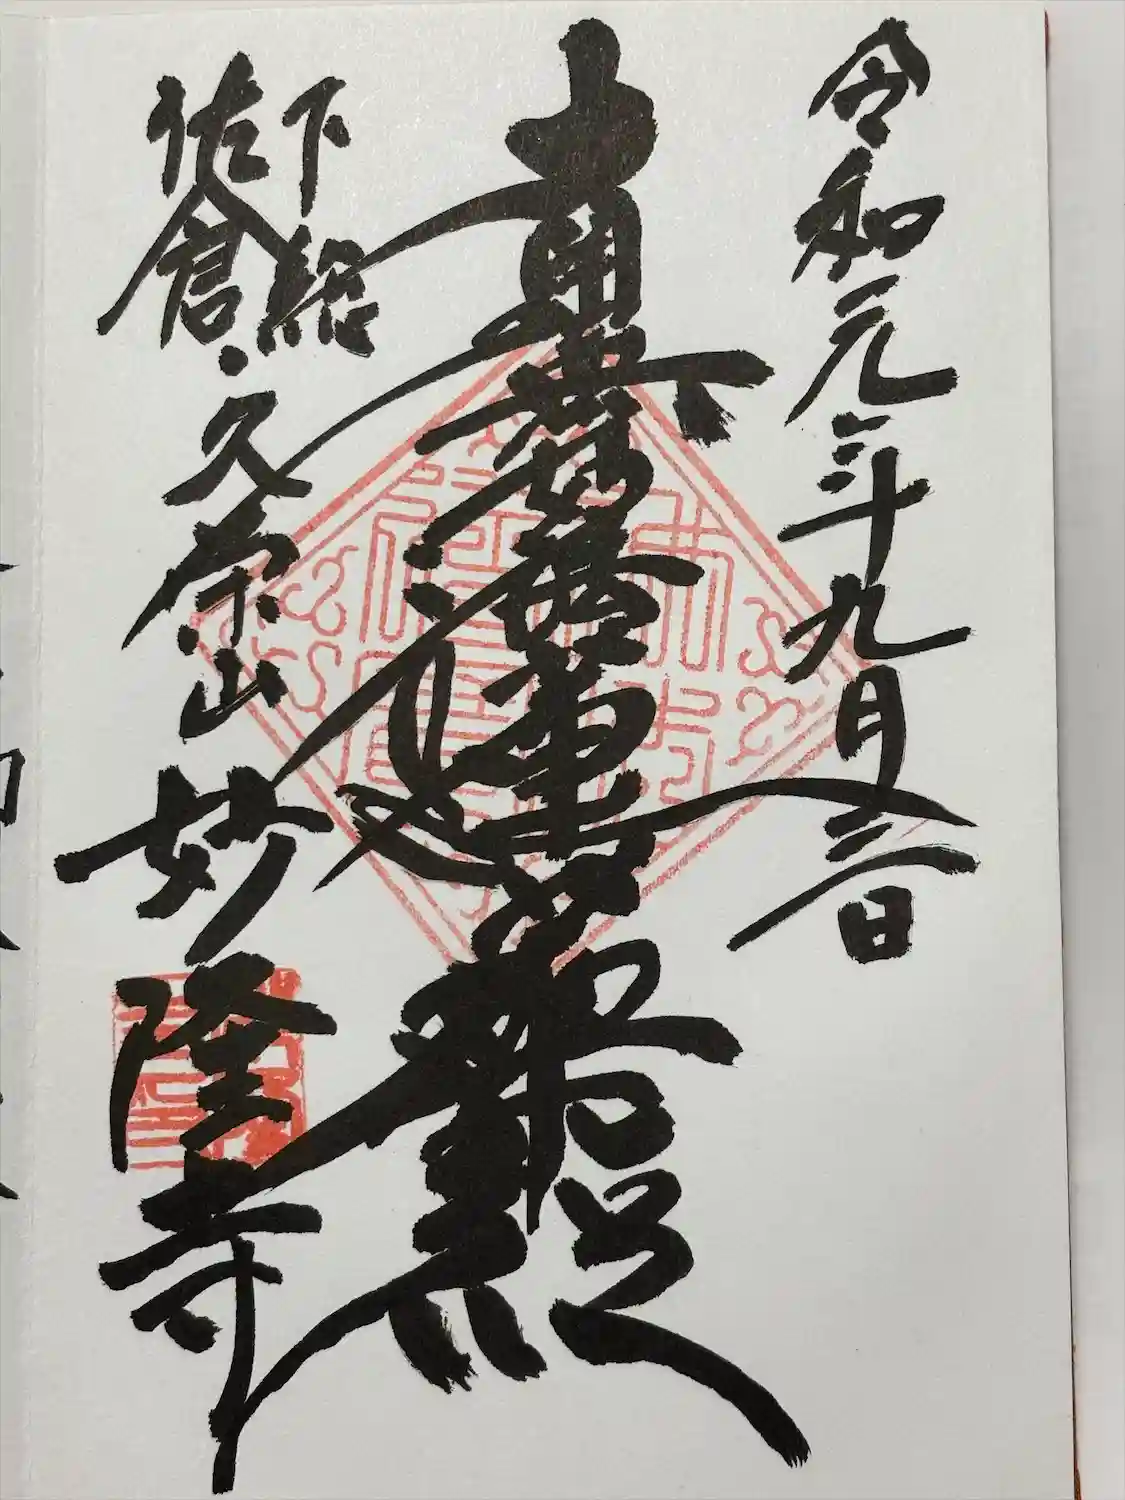 令和元年九月三日
南無妙法蓮華經
下総
佐倉・久栄山妙隆寺